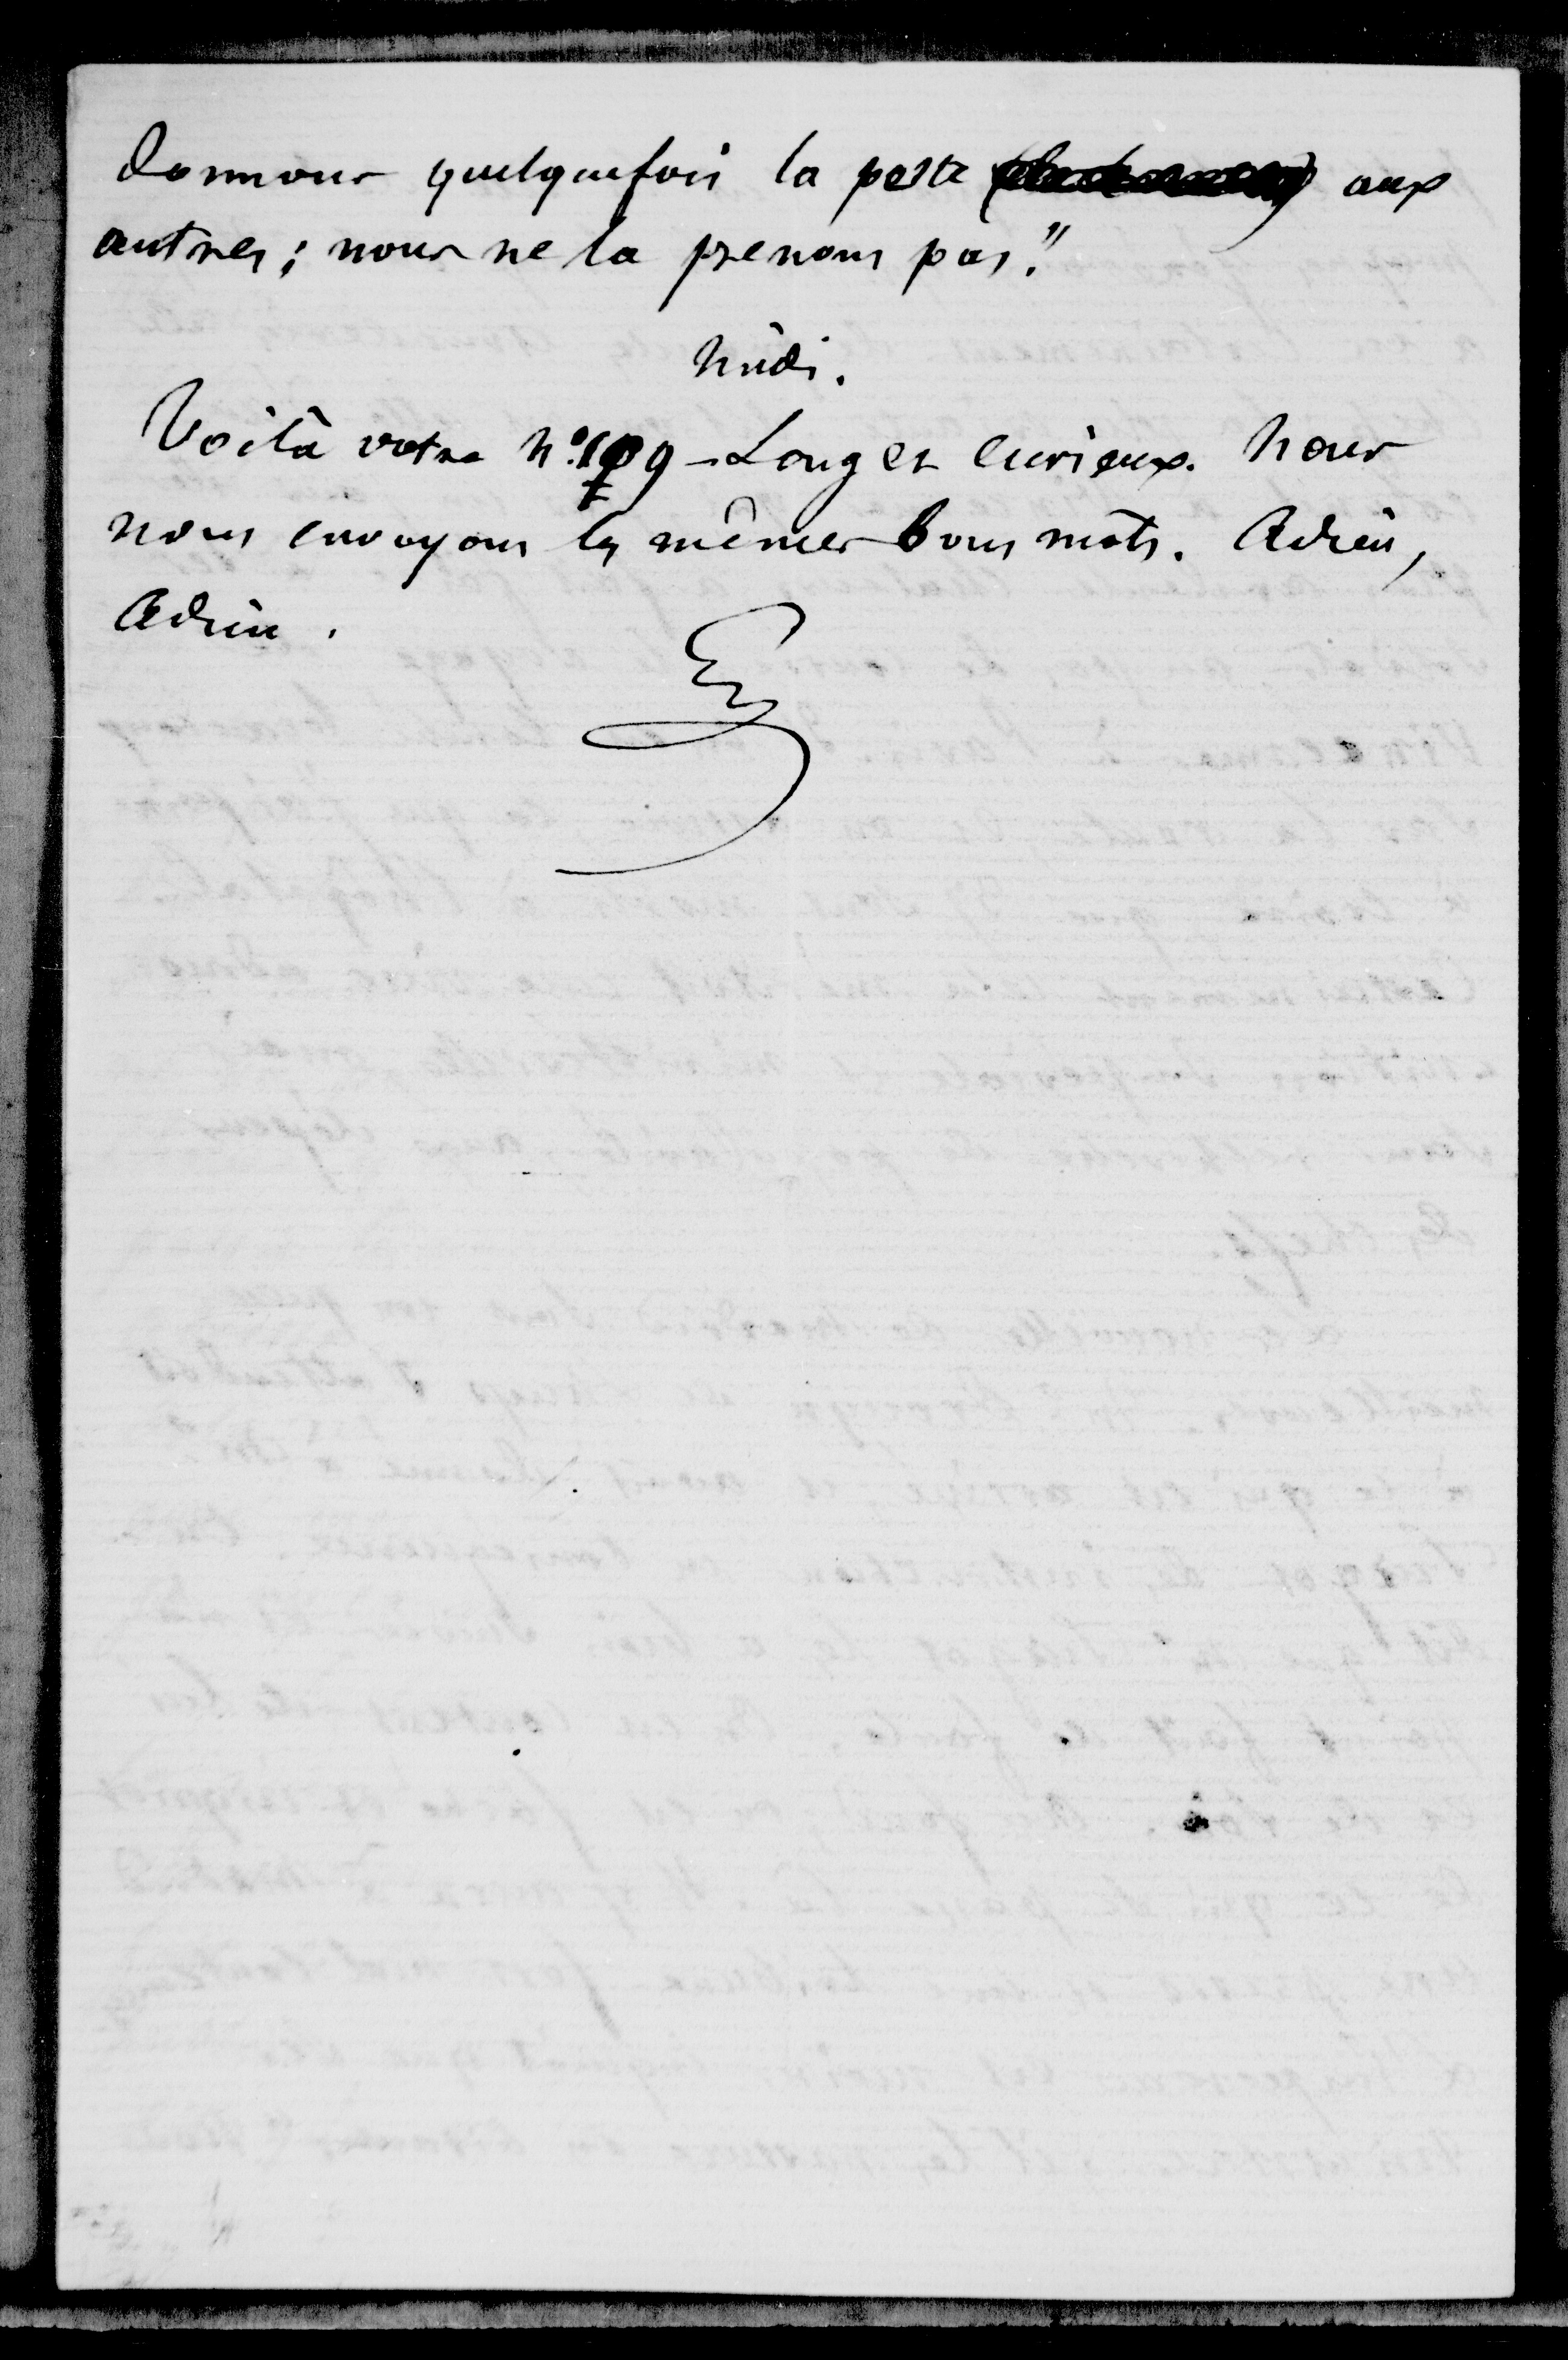 donnons quelquefois la peste aux
autres ; nous ne la prenons pas."
Midi.
Voilà votre N.° 109 - Long et curieux. Nous
nous envoyons les mêmes bons mots. Adieu,
Adieu.